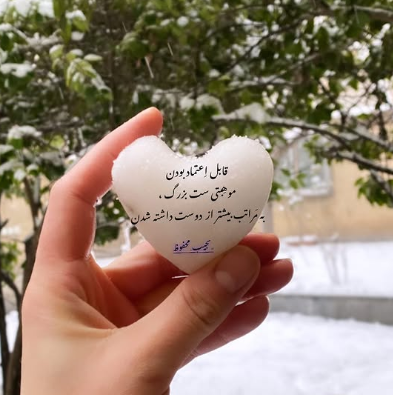 قابل إعتماد بودن
موهبتی ست بزرگ ،
به مراتب بیشتر از دوست داشته شدن
نجیب محفوظ